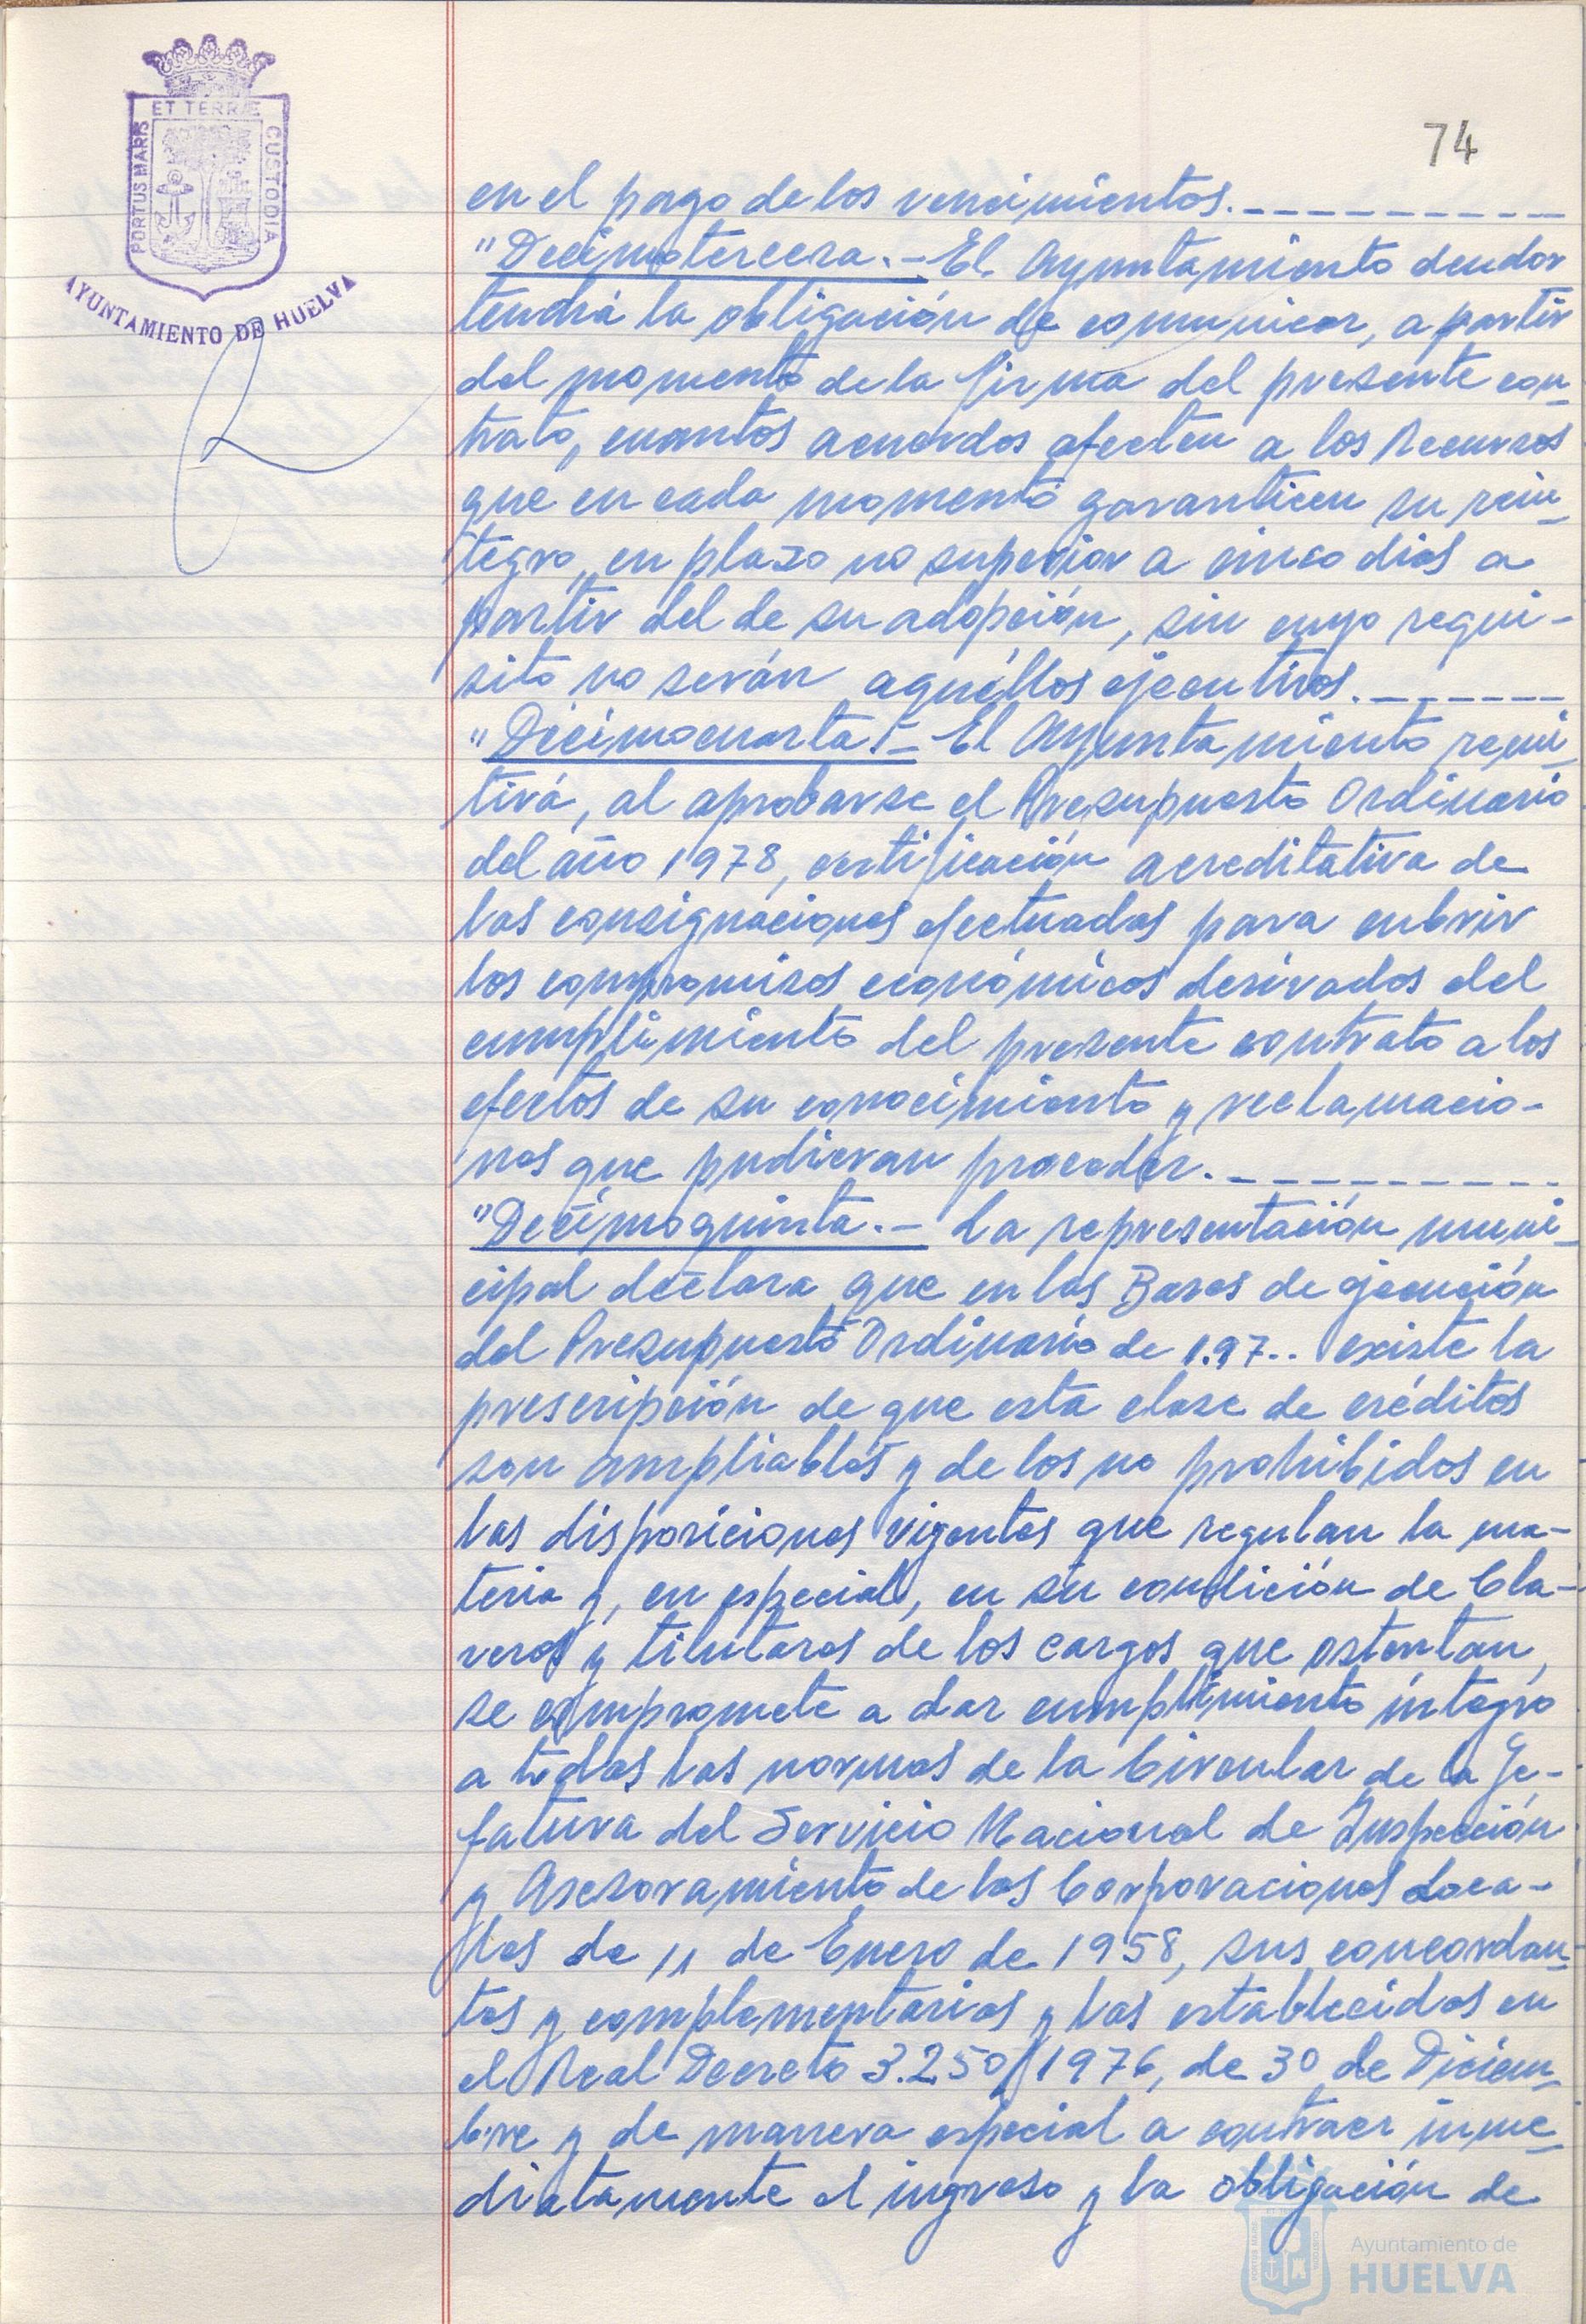 ET TERRÆ
PORTUS MARIS
CUSTODIA
AYUNTAMIENTO DE HUELVA
74
en el pago de los vencimientos.----------
"Decimotercera.- El Ayuntamiento deudor
tendrá la obligación de comunicar, a partir
del momento de la firma del presente con-
trato, cuantos acuerdos afecten a los Recursos
que en cada momento garanticen su rein-
tegro, en plazo no superior a cinco días a
partir del de su adopción, sin cuyo requi-
sito no serán aquéllos ejecutivos.-------
"Decimocuarta.- El Ayuntamiento remi-
tirá, al aprobarse el Presupuesto Ordinario
del año 1978, certificación acreditativa de
las consignaciones efectuadas para cubrir
los compromisos económicos derivados del
cumplimiento del presente contrato a los
efectos de su conocimiento y reclamacio-
nes que pudieran proceder.----------
"Decimoquinta.- La representación muni-
cipal declara que en las Bases de ejecución
del Presupuesto Ordinario de 1.97.. existe la
prescripción de que esta clase de créditos
son ampliables y de los no prohibidos en
las disposiciones vigentes que regulan la ma-
teria y, en especial, en su condición de Cla-
veros y titulares de los cargos que ostentan,
se compromete a dar cumplimiento íntegro
a todas las normas de la Circular de la Je-
fatura del Servicio Nacional de Inspección
y Asesoramiento de las Corporaciones Loca-
les de 11 de Enero de 1958, sus concordan-
tes y complementarias y las establecidas en
el Real Decreto 3.250/1976, de 30 de Diciem-
bre y de manera especial a contraer inme-
diatamente el ingreso y la obligación de
Ayuntamiento de
HUELVA